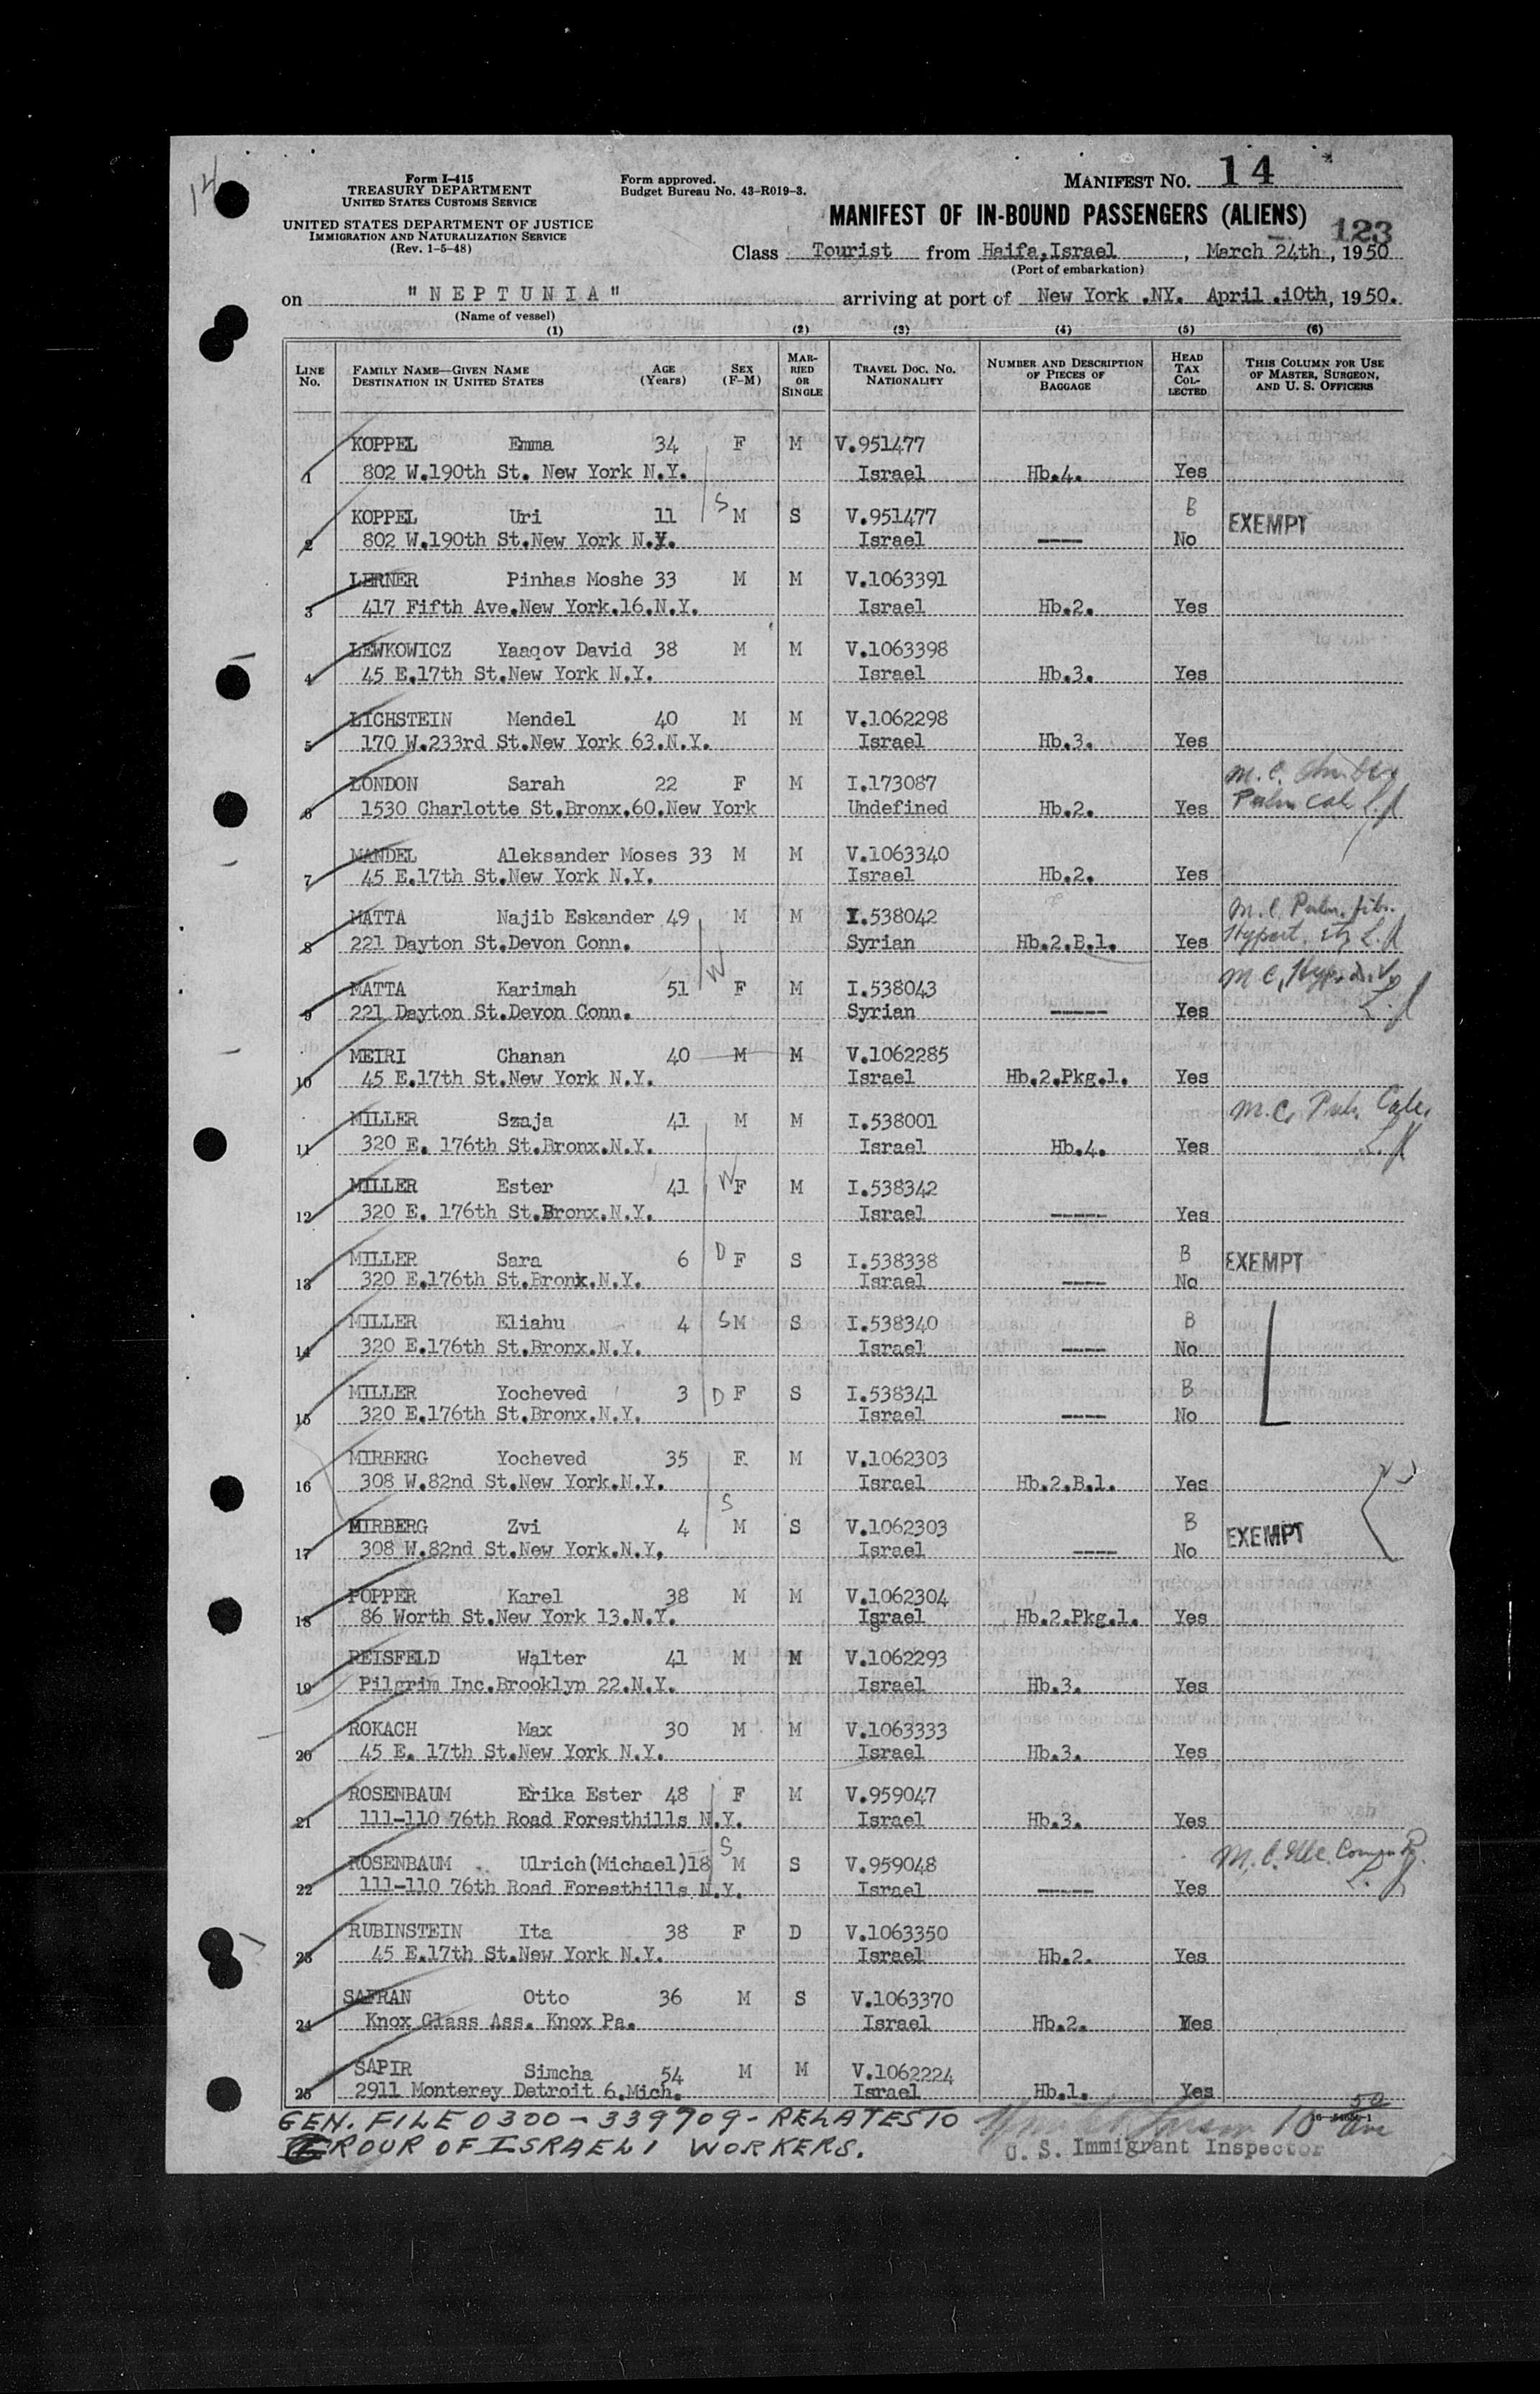 14
Form I-415
TREASURY DEPARTMENT
UNITED STATES CUSTOMS SERVICE
UNITED STATES DEPARTMENT OF JUSTICE
IMMIGRATION AND NATURALIZATION SERVICE
(Rev. 1-5-48)
Form approved.
Budget Bureau No. 43-R019-3.
MANIFEST NO. 14
MANIFEST OF IN-BOUND PASSENGERS (ALIENS)
123
Class Tourist from Haifa,Israel , March 24th , 1950
(Port of embarkation)
on "NEPTUNIA" arriving at port of New York .NY. April .10th, 1950.
(Name of vessel)
(1) (2) (3) (4) (5) (6)
LINE No. FAMILY NAME—GIVEN NAME DESTINATION IN UNITED STATES AGE (Years) SEX (F-M) MARRIED OR SINGLE TRAVEL DOC. NO. NATIONALITY NUMBER AND DESCRIPTION OF PIECES OF BAGGAGE HEAD TAX COLLECTED THIS COLUMN FOR USE OF MASTER, SURGEON, AND U. S. OFFICERS
KOPPEL Emma 34 F M V.951477
1 802 W.190th St. New York N.Y. Israel Hb.4. Yes
KOPPEL Uri 11 S M S V.951477 B EXEMPT
2 802 W.190th St.New York N.Y. Israel ---- No
LERNER Pinhas Moshe 33 M M V.1063391
3 417 Fifth Ave.New York.16.N.Y. Israel Hb.2. Yes
LEWKOWICZ Yaaqov David 38 M M V.1063398
4 45 E.17th St.New York N.Y. Israel Hb.3. Yes
LICHSTEIN Mendel 40 M M V.1062298
5 170 W.233rd St.New York 63.N.Y. Israel Hb.3. Yes
LONDON Sarah 22 F M I.173087 M.C.
6 1530 Charlotte St.Bronx.60.New York Undefined Hb.2. Yes Pulm Cal
MANDEL Aleksander Moses 33 M M V.1063340
7 45 E.17th St.New York N.Y. Israel Hb.2. Yes
MATTA Najib Eskander 49 M M I.538042 M.C. Pulm. fib.
8 221 Dayton St.Devon Conn. Syrian Hb.2.B.1. Yes Hypert.
MATTA Karimah 51 W F M I.538043 M.C.
9 221 Dayton St.Devon Conn. Syrian ----- Yes
MEIRI Chanan 40 M M V.1062285
10 45 E.17th St.New York N.Y. Israel Hb.2.Pkg.1. Yes
MILLER Szaja 41 M M I.538001 M.C. Pulm. Calc.
11 320 E. 176th St.Bronx.N.Y. Israel Hb.4. Yes
MILLER Ester 41 W F M I.538342
12 320 E. 176th St.Bronx.N.Y. Israel ----- Yes
MILLER Sara 6 D F S I.538338 B EXEMPT
13 320 E.176th St.Bronx.N.Y. Israel ---- No
MILLER Eliahu 4 S M S I.538340 B
14 320 E.176th St.Bronx.N.Y. Israel ---- No
MILLER Yocheved 3 D F S I.538341 B
15 320 E.176th St.Bronx.N.Y. Israel ---- No
MIRBERG Yocheved 35 F. M V.1062303
16 308 W.82nd St.New York.N.Y. Israel Hb.2.B.1. Yes
MIRBERG Zvi 4 S M S V.1062303 B EXEMPT
17 308 W.82nd St.New York.N.Y. Israel ---- No
POPPER Karel 38 M M V.1062304
18 86 Worth St.New York 13.N.Y. Israel Hb.2.Pkg.1. Yes
REISFELD Walter 41 M M V.1062293
19 Pilgrim Inc.Brooklyn 22.N.Y. Israel Hb.3. Yes
ROKACH Max 30 M M V.1063333
20 45 E. 17th St.New York N.Y. Israel Hb.3. Yes
ROSENBAUM Erika Ester 48 F M V.959047
21 111-110 76th Road Foresthills N.Y. Israel Hb.3. Yes
ROSENBAUM Ulrich(Michael)18 S M S V.959048 M.C.
22 111-110 76th Road Foresthills N.Y. Israel ----- Yes
RUBINSTEIN Ita 38 F D V.1063350
23 45 E.17th St.New York N.Y. Israel Hb.2. Yes
SAFRAN Otto 36 M S V.1063370
24 Knox Glass Ass. Knox Pa. Israel Hb.2. Yes
SAPIR Simcha 54 M M V.1062224
25 2911 Monterey Detroit 6.Mich. Israel Hb.1. Yes
GEN. FILE 0300-339709-RELATES TO
GROUP OF ISRAELI WORKERS.
U. S. Immigrant Inspector